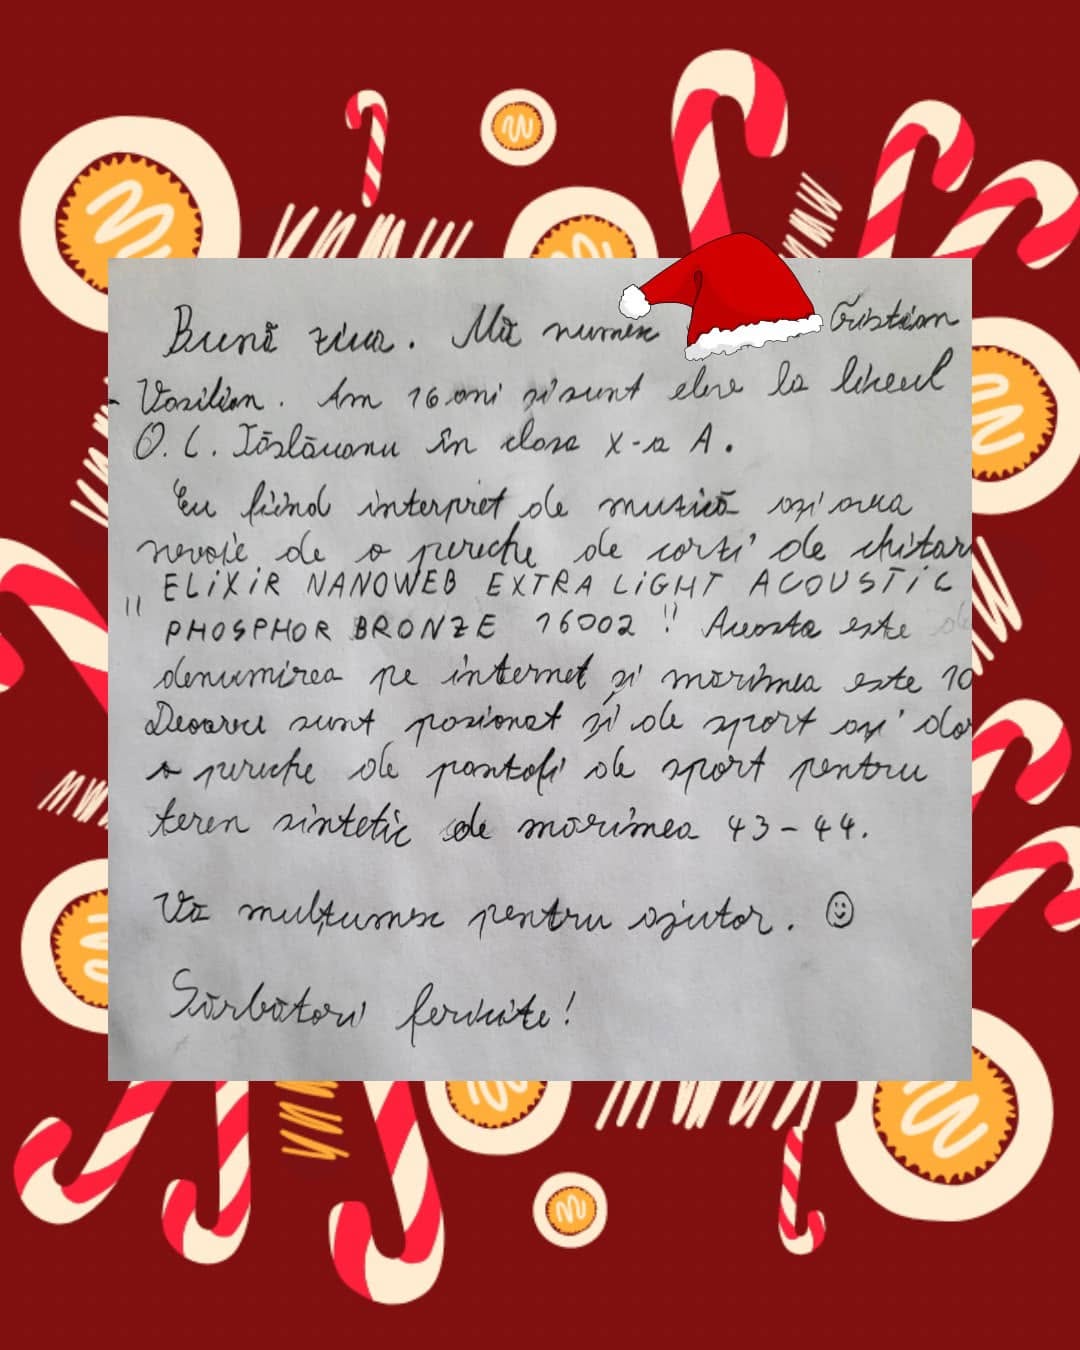 Bună ziua. Mă numesc Cristian
- Vasilian. Am 16 ani și sunt elev la liceul
O. C. Tăslăuanu în clasa X-a A.
Eu fiind interpret de muzică aș avea
nevoie de o pereche de corzi de chitar
" ELIXIR NANOWEB EXTRA LIGHT ACOUSTIC
PHOSPHOR BRONZE 16002 " Aceasta este
denumirea pe internet și mărimea este 10
Deoarece sunt pasionat și de sport aș dor
o pereche de pantofi de sport pentru
teren sintetic de mărimea 43-44.
Vă mulțumesc pentru ajutor. ☺
Sărbători fericite!